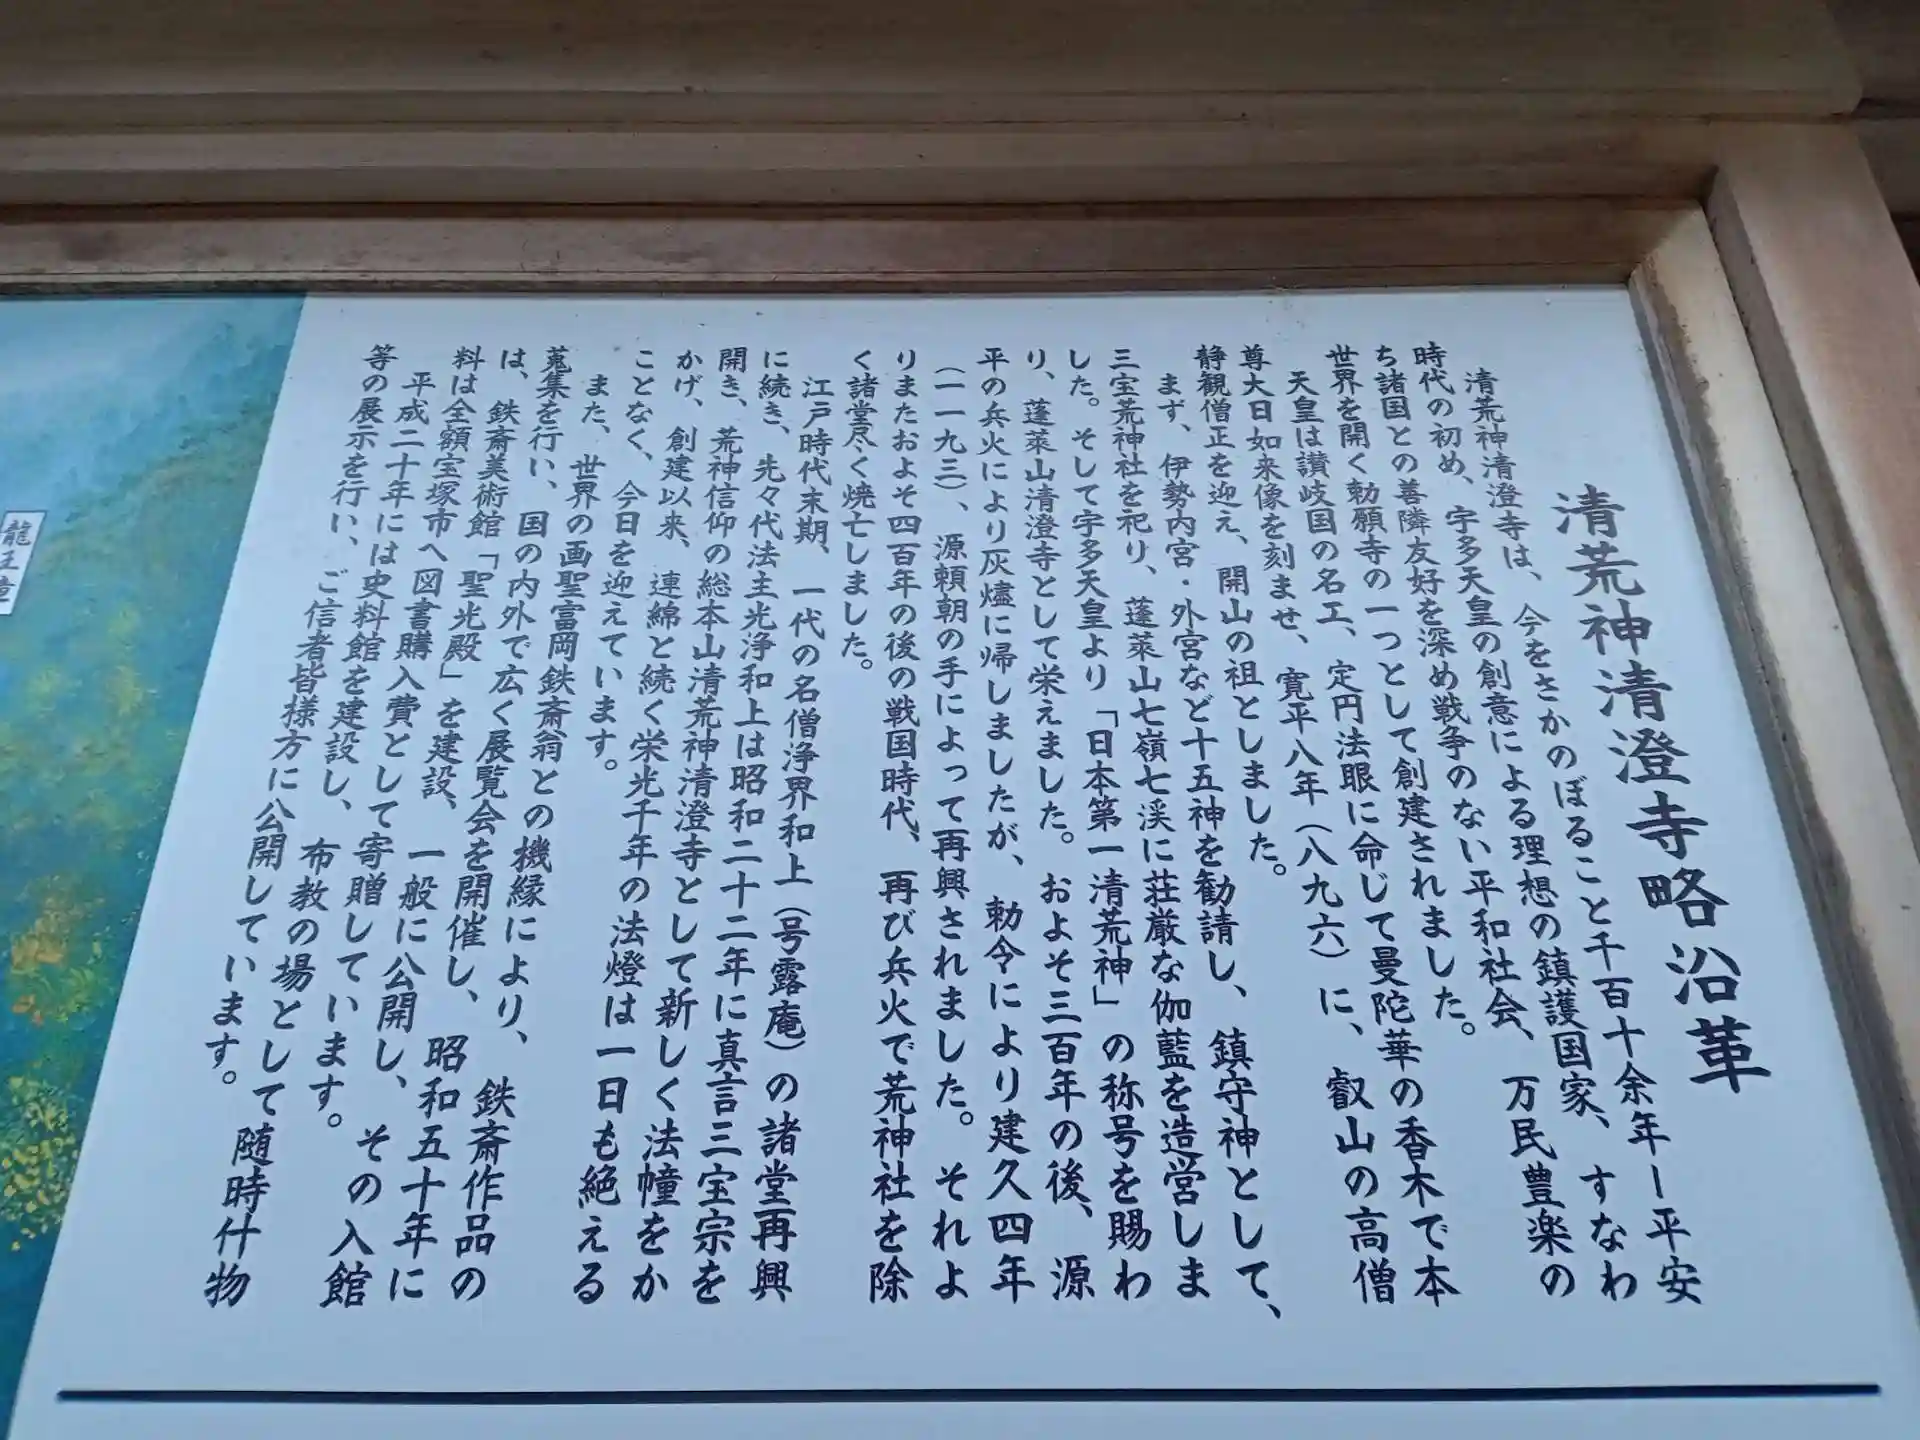 清荒神清澄寺略沿革
清荒神清澄寺は、今をさかのぼること千百十余年ー平安
時代の初め、宇多天皇の創意による理想の鎮護国家、すなわ
ち諸国との善隣友好を深め戦争のない平和社会、万民豊楽の
世界を開く勅願寺の一つとして創建されました。
天皇は讃岐国の名工、定円法眼に命じて曼陀華の香木で本
尊大日如来像を刻ませ、寛平八年（八九六）に、叡山の高僧
静観僧正を迎え、開山の祖としました。
まず、伊勢内宮・外宮など十五神を勧請し、鎮守神として、
三宝荒神社を祀り、蓬莱山七嶺七渓に荘厳な伽藍を造営しま
した。そして宇多天皇より「日本第一清荒神」の称号を賜わ
り、蓬莱山清澄寺として栄えました。およそ三百年の後、源
平の兵火により灰燼に帰しましたが、勅令により建久四年
（一一九三）、源頼朝の手によって再興されました。それよ
りまたおよそ四百年の後の戦国時代、再び兵火で荒神社を除
く諸堂尽く焼亡しました。
江戸時代末期、一代の名僧浄界和上（号露庵）の諸堂再興
に続き、先々代法主光浄和上は昭和二十二年に真言三宝宗を
開き、荒神信仰の総本山清荒神清澄寺として新しく法幢をか
かげ、創建以来、連綿と続く栄光千年の法燈は一日も絶える
ことなく、今日を迎えています。
また、世界の画聖富岡鉄斎翁との機縁により、鉄斎作品の
蒐集を行い、国の内外で広く展覧会を開催し、昭和五十年に
は、鉄斎美術館「聖光殿」を建設、一般に公開し、その入館
料は全額宝塚市へ図書購入費として寄贈しています。
平成二十年には史料館を建設し、布教の場として随時什物
等の展示を行い、ご信者皆様方に公開しています。
龍王